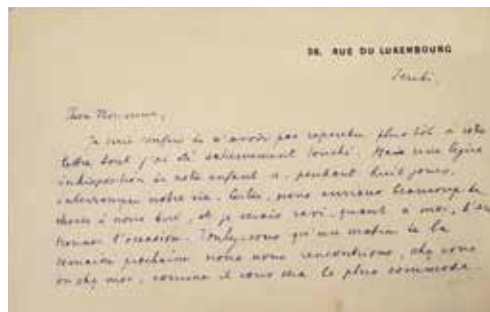 36, RUE DU LUXEMBOURG
Jeudi,
Cher Monsieur,
Je suis confus de n'avoir pas répondu plus tôt à votre
lettre dont j'ai été extrêmement touché. Mais une légère
indisposition de notre enfant a, pendant huit jours,
interrompu notre vie. Certes, nous aurions beaucoup de
choses à nous dire, et je serais ravi, quant à moi, d'en
trouver l'occasion. Voulez-vous qu'un matin de la
semaine prochaine nous nous rencontrions, chez vous
ou chez moi, comme il vous sera le plus commode.